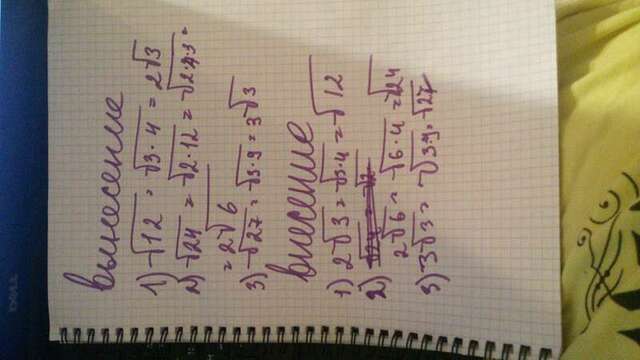 DELL
Вынесение
1) √12 = √3·4 = 2√3
2) √24 = √2·12 = √2·4·3 =
= 2√6
3) √27 = √3·9 = 3√3
Внесение
1) 2√3 = √3·4 = √12
2) √24 = √2
2√6 = √6·4 = √24
3) 3√3 = √3·9 = √27